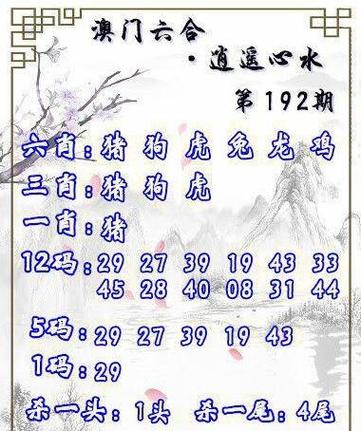 澳门六合
·逍遥心水
第192期
六肖:猪 狗 虎 兔 龙 鸡
三肖:猪 狗 虎
一肖:猪
12码:29 27 39 19 43 33
45 28 40 08 31 44
5码:29 27 39 19 43
1码:29
杀一头:1头 杀一尾:4尾